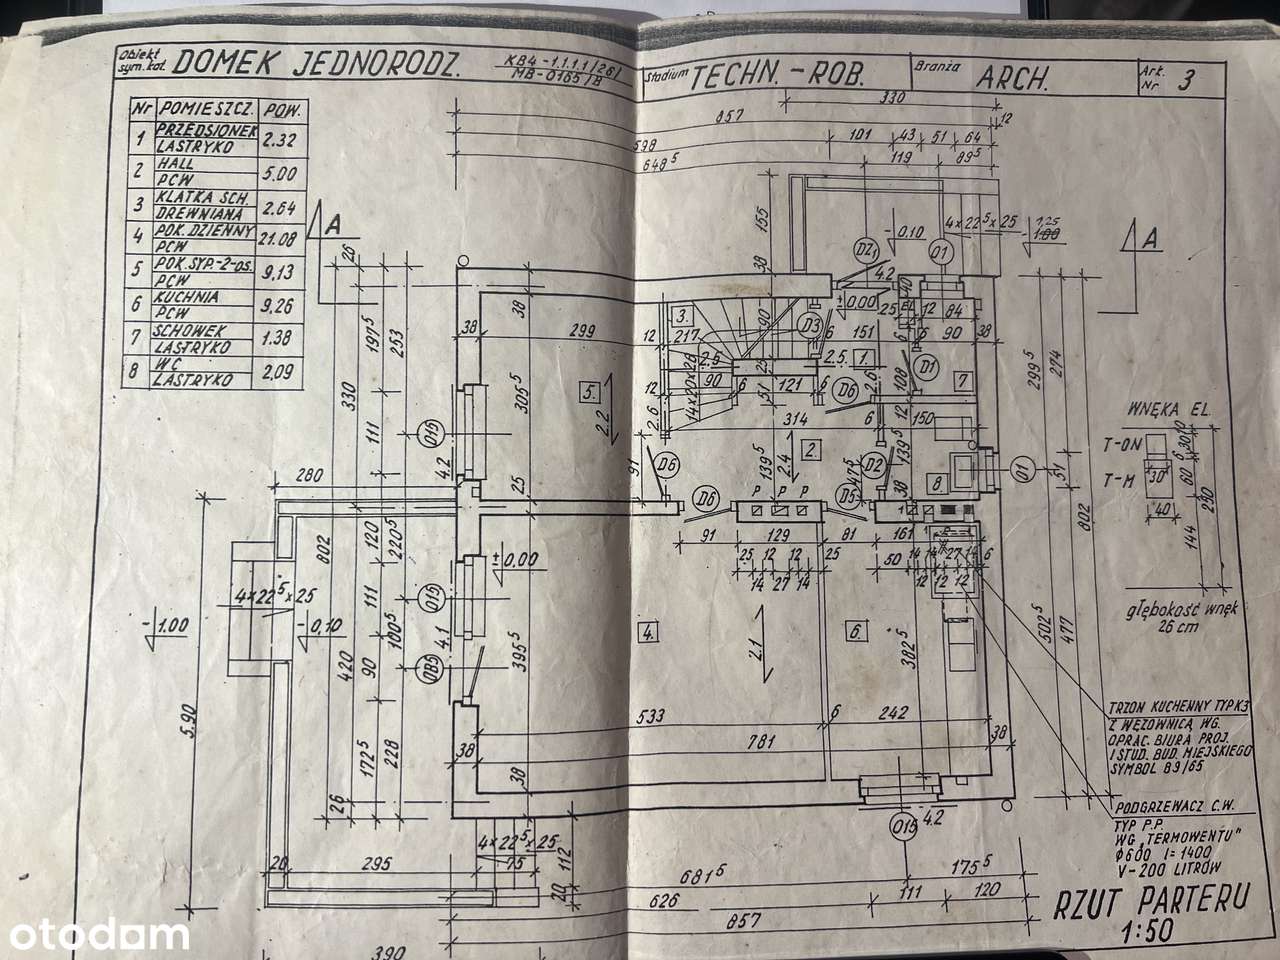 Obiekt
sym. kat.
DOMEK JEDNORODZ.
KB4-1.1.1.1/26/
MB-0165/B
Stadium TECHN.-ROB.
Branża ARCH.
Ark.
Nr 3
Nr POMIESZCZ. POW.
1 PRZEDSIONEK LASTRYKO 2.32
2 HALL PCW 5.00
3 KLATKA SCH. DREWNIANA 2.64
4 POK. DZIENNY PCW 21.08
5 POK. SYP.-2-OS. PCW 9,13
6 KUCHNIA PCW 9,26
7 SCHOWEK LASTRYKO 1.38
8 WC LASTRYKO 2,09
330
857
12
598
101 43 51 64
648⁵
119 89⁵
A
26
155
38
-0.10
4x22⁵x25
1,25
1.00
A
DZ1
O1
4.2
±0.00
197⁵
253
330
38
38
299
12
217
3.
90
D3
6
151
25
EL
12
84
6
90
38
2.5
2.5
1.
D1
7
14x20x28
90
6
121
6
25
51
D6
2.6
108
12
299⁵
274
305⁵
5.
2.2
12
2.6
314
6
150
111
O15
4.2
91
D6
139⁵
2.4
2.
47⁵
D2
139⁵
8
O1
51
802
WNĘKA EL.
T-ON
T-M
30
40
10
30
6
60
144
250
głębokość wnęk
26 cm
280
25
D6
P P P
D5
38
120
220⁵
802
±0.00
91
129
81
161
25 12 12 25
14 27 14
50 14 14 27 14 6
12 12 12
4x22⁵x25
-1.00
-0,10
111
O15
4.1
100⁵
420
90
OB5
395⁵
4.
2.1
6.
382⁵
502⁵
477
5.90
172⁵
228
533
6
242
38
781
38
38
26
TRZON KUCHENNY TYP K3
Z WĘŻOWNICĄ WG.
OPRAC. BIURA PROJ.
I STUD. BUD. MIEJSKIEGO
SYMBOL 89/65
PODGRZEWACZ C.W.
TYP P.P.
WG „TERMOWENTU"
ϕ600 l=1400
V-200 LITRÓW
O15
4.2
4x22⁵x25
75
112
20
20
295
681⁵
175⁵
626
111
120
857
390
RZUT PARTERU
1:50
otodom